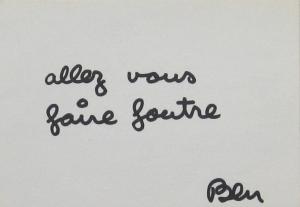 allez vous
faire foutre
Ben